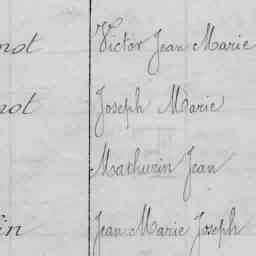 not Victor Jean Marie
not Joseph Marie
Mathurin Jean
in Jean Marie Joseph